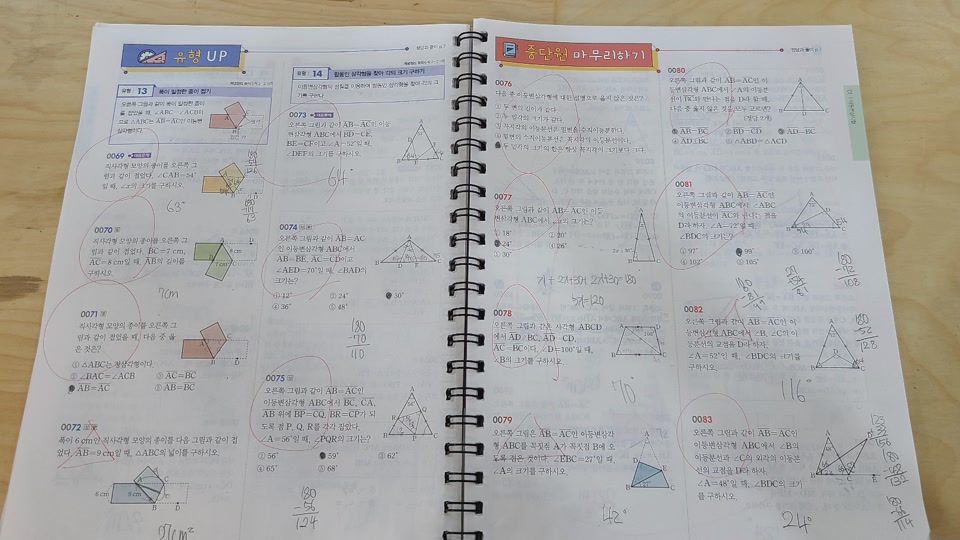 유형 UP
유형 13 폭이 일정한 종이 접기
오른쪽 그림과 같이 폭이 일정한 종이를 접었을 때, ∠ABC=∠ACB이
므로 △ABC는 AB=AC인 이등변
삼각형이다.
0069 대표문제
직사각형 모양의 종이를 오른쪽 그
림과 같이 접었다. ∠CAB=54°
일 때, ∠x의 크기를 구하시오.
63°
180
54
126
180
117
63
0070
직사각형 모양의 종이를 오른쪽 그
림과 같이 접었다. BC=7 cm,
AC=8 cm일 때, AB의 길이를
구하시오.
8 cm
7 cm
7cm
0071
직사각형 모양의 종이를 오른쪽 그
림과 같이 접었을 때, 다음 중 옳
은 것은?
① △ABC는 정삼각형이다.
② ∠BAC=∠ACB ③ AC=BC
AB=AC ⑤ AB=BC
0072
폭이 6 cm인 직사각형 모양의 종이를 다음 그림과 같이 접
었다. AB=9 cm일 때, △ABC의 넓이를 구하시오.
6 cm
9 cm
27cm²
유형 14 합동인 삼각형을 찾아 각의 크기 구하기
이등변삼각형의 성질을 이용하여 합동인 삼각형을 찾아 각의 크
기를 구한다.
0073 대표문제
오른쪽 그림과 같이 AB=AC인 이등
변삼각형 ABC에서 BD=CE,
BE=CF이고 ∠A=52°일 때,
∠DEF의 크기를 구하시오.
64°
0074
오른쪽 그림과 같이 AB=AC
인 이등변삼각형 ABC에서
AB=BE, AC=CD이고
∠AED=70°일 때, ∠BAD의
크기는?
① 12° ② 24° 30°
④ 36° ⑤ 48°
180
-70
110
0075
오른쪽 그림과 같이 AB=AC인
이등변삼각형 ABC에서 BC, CA,
AB 위에 BP=CQ, BR=CP가 되
도록 점 P, Q, R를 각각 잡았다.
∠A=56°일 때, ∠PQR의 크기는?
① 56° 59° ③ 62°
④ 65° ⑤ 68°
180
-56
124
중단원 마무리하기
0076
다음 중 이등변삼각형에 대한 설명으로 옳지 않은 것은?
① 두 변의 길이가 같다.
② 두 밑각의 크기가 같다.
③ 꼭지각의 이등분선은 밑변을 수직이등분한다.
④ 밑변의 수직이등분선은 꼭지각의 이등분선이다.
두 밑각의 크기의 합은 항상 꼭지각의 크기보다 크다.
0077
오른쪽 그림과 같이 AB=AC인 이등
변삼각형 ABC에서 ∠x의 크기는?
① 18° ② 20°
24° ④ 26°
① 30°
x+2x+30+2x+30=180
5x=120
0078
오른쪽 그림과 같은 사각형 ABCD
에서 AD∥BC, AB=AD=CD,
AC=BC이다. ∠D=100°일 때,
∠B의 크기를 구하시오.
70°
0079
오른쪽 그림은 AB=AC인 이등변삼각
형 ABC를 꼭짓점 A가 꼭짓점 B에 오
도록 접은 것이다. ∠EBC=27°일 때,
∠A의 크기를 구하시오.
42°
0080
오른쪽 그림과 같이 AB=AC인 이
등변삼각형 ABC에서 ∠A의 이등분
선이 BC와 만나는 점을 D라 할 때,
다음 중 옳지 않은 것을 모두 고르면?
(정답 2개)
AB=BC ② BD=CD AD=BC
④ AD⊥BC ⑤ △ABD≡△ACD
0081
오른쪽 그림과 같이 AB=AC인
이등변삼각형 ABC에서 ∠ABC
의 이등분선이 AC와 만나는 점을
D라 하자. ∠A=72°일 때,
∠BDC의 크기는?
① 97° 99° ③ 100°
④ 102° ⑤ 105°
180
-81
99
180
-72
108
0082
오른쪽 그림과 같이 AB=AC인 이
등변삼각형 ABC에서 ∠B, ∠C의 이
등분선의 교점을 D라 하자.
∠A=52°일 때, ∠BDC의 크기를
구하시오.
116°
180
-52
128
0083
오른쪽 그림과 같이 AB=AC인
이등변삼각형 ABC에서 ∠B의
이등분선과 ∠C의 외각의 이등분
선의 교점을 D라 하자.
∠A=48°일 때, ∠BDC의 크기
를 구하시오.
24°
180
-48
132